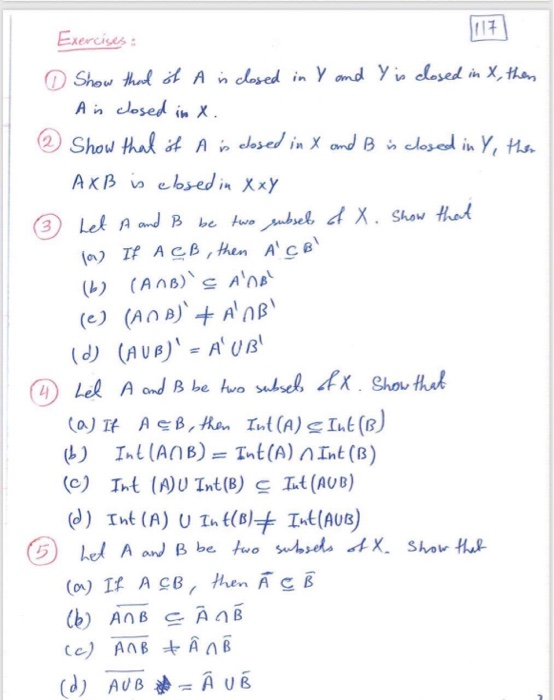 117
Exercises:
① Show that if A is closed in Y and Y is closed in X, then
A is closed in X.
② Show that if A is closed in X and B is closed in Y, then
A×B is closed in X×Y
③ Let A and B be two subsets of X. Show that
(a) If A ⊆ B, then A' ⊆ B'
(b) (A∩B)' ⊆ A'∩B'
(c) (A∩B)' ≠ A'∩B'
(d) (A∪B)' = A'∪B'
④ Let A and B be two subsets of X. Show that
(a) If A ⊆ B, then Int(A) ⊆ Int(B)
(b) Int(A∩B) = Int(A) ∩ Int(B)
(c) Int(A) ∪ Int(B) ⊆ Int(A∪B)
(d) Int(A) ∪ Int(B) ≠ Int(A∪B)
⑤ Let A and B be two subsets of X. Show that
(a) If A ⊆ B, then Ā ⊆ B̄
(b) A̅∩̅B̅ ⊆ Ā ∩ B̄
(c) A̅∩̅B̅ ≠ Ā ∩ B̄
(d) A̅∪̅B̅ = Ā ∪ B̄